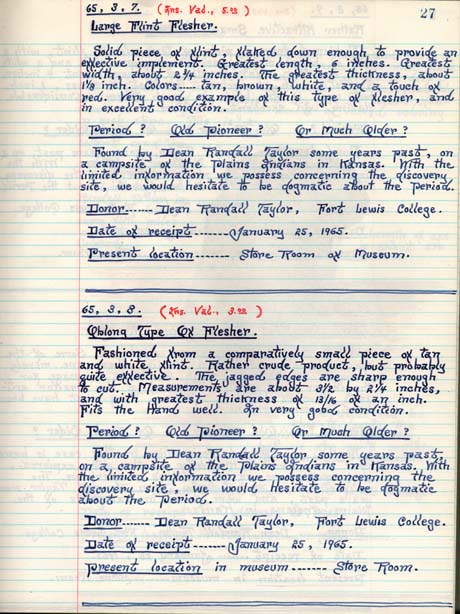 27
65, 3, 7. (Ins. Val., 5.00)
Large Flint Flesher.
Solid piece of flint, flaked down enough to provide an
effective implement. Greatest length, 6 inches. Greatest
width, about 2 1/4 inches. The greatest thickness, about
1 1/8 inch. Colors---- tan, brown, white, and a touch of
red. Very good example of this type of flesher, and
in excellent condition.
Period? Old Pioneer? Or Much Older?
Found by Dean Randall Taylor some years past, on
a campsite of the Plains Indians in Kansas. With the
limited information we possess concerning the discovery
site, we would hesitate to be dogmatic about the Period.
Donor------ Dean Randall Taylor, Fort Lewis College.
Date of receipt-------January 25, 1965.
Present location------ Store Room of Museum.
65, 3, 8. (Ins. Val., 3.00)
Oblong Type Of Flesher.
Fashioned from a comparatively small piece of tan
and white flint. Rather crude product, but probably
quite effective. The jagged edges are sharp enough
to cut. Measurements are about 3 1/2 by 2 1/4 inches,
and with greatest thickness of 13/16 of an inch.
Fits the Hand well. In very good condition.
Period? Old Pioneer? Or Much Older?
Found by Dean Randall Taylor some years past,
on a campsite of the Plains Indians in Kansas. With
the limited information we possess concerning the
discovery site, we would Hesitate to be dogmatic
about the Period.
Donor----- Dean Randall Taylor, Fort Lewis College.
Date of receipt------- January 25, 1965.
Present location in museum------ Store Room.